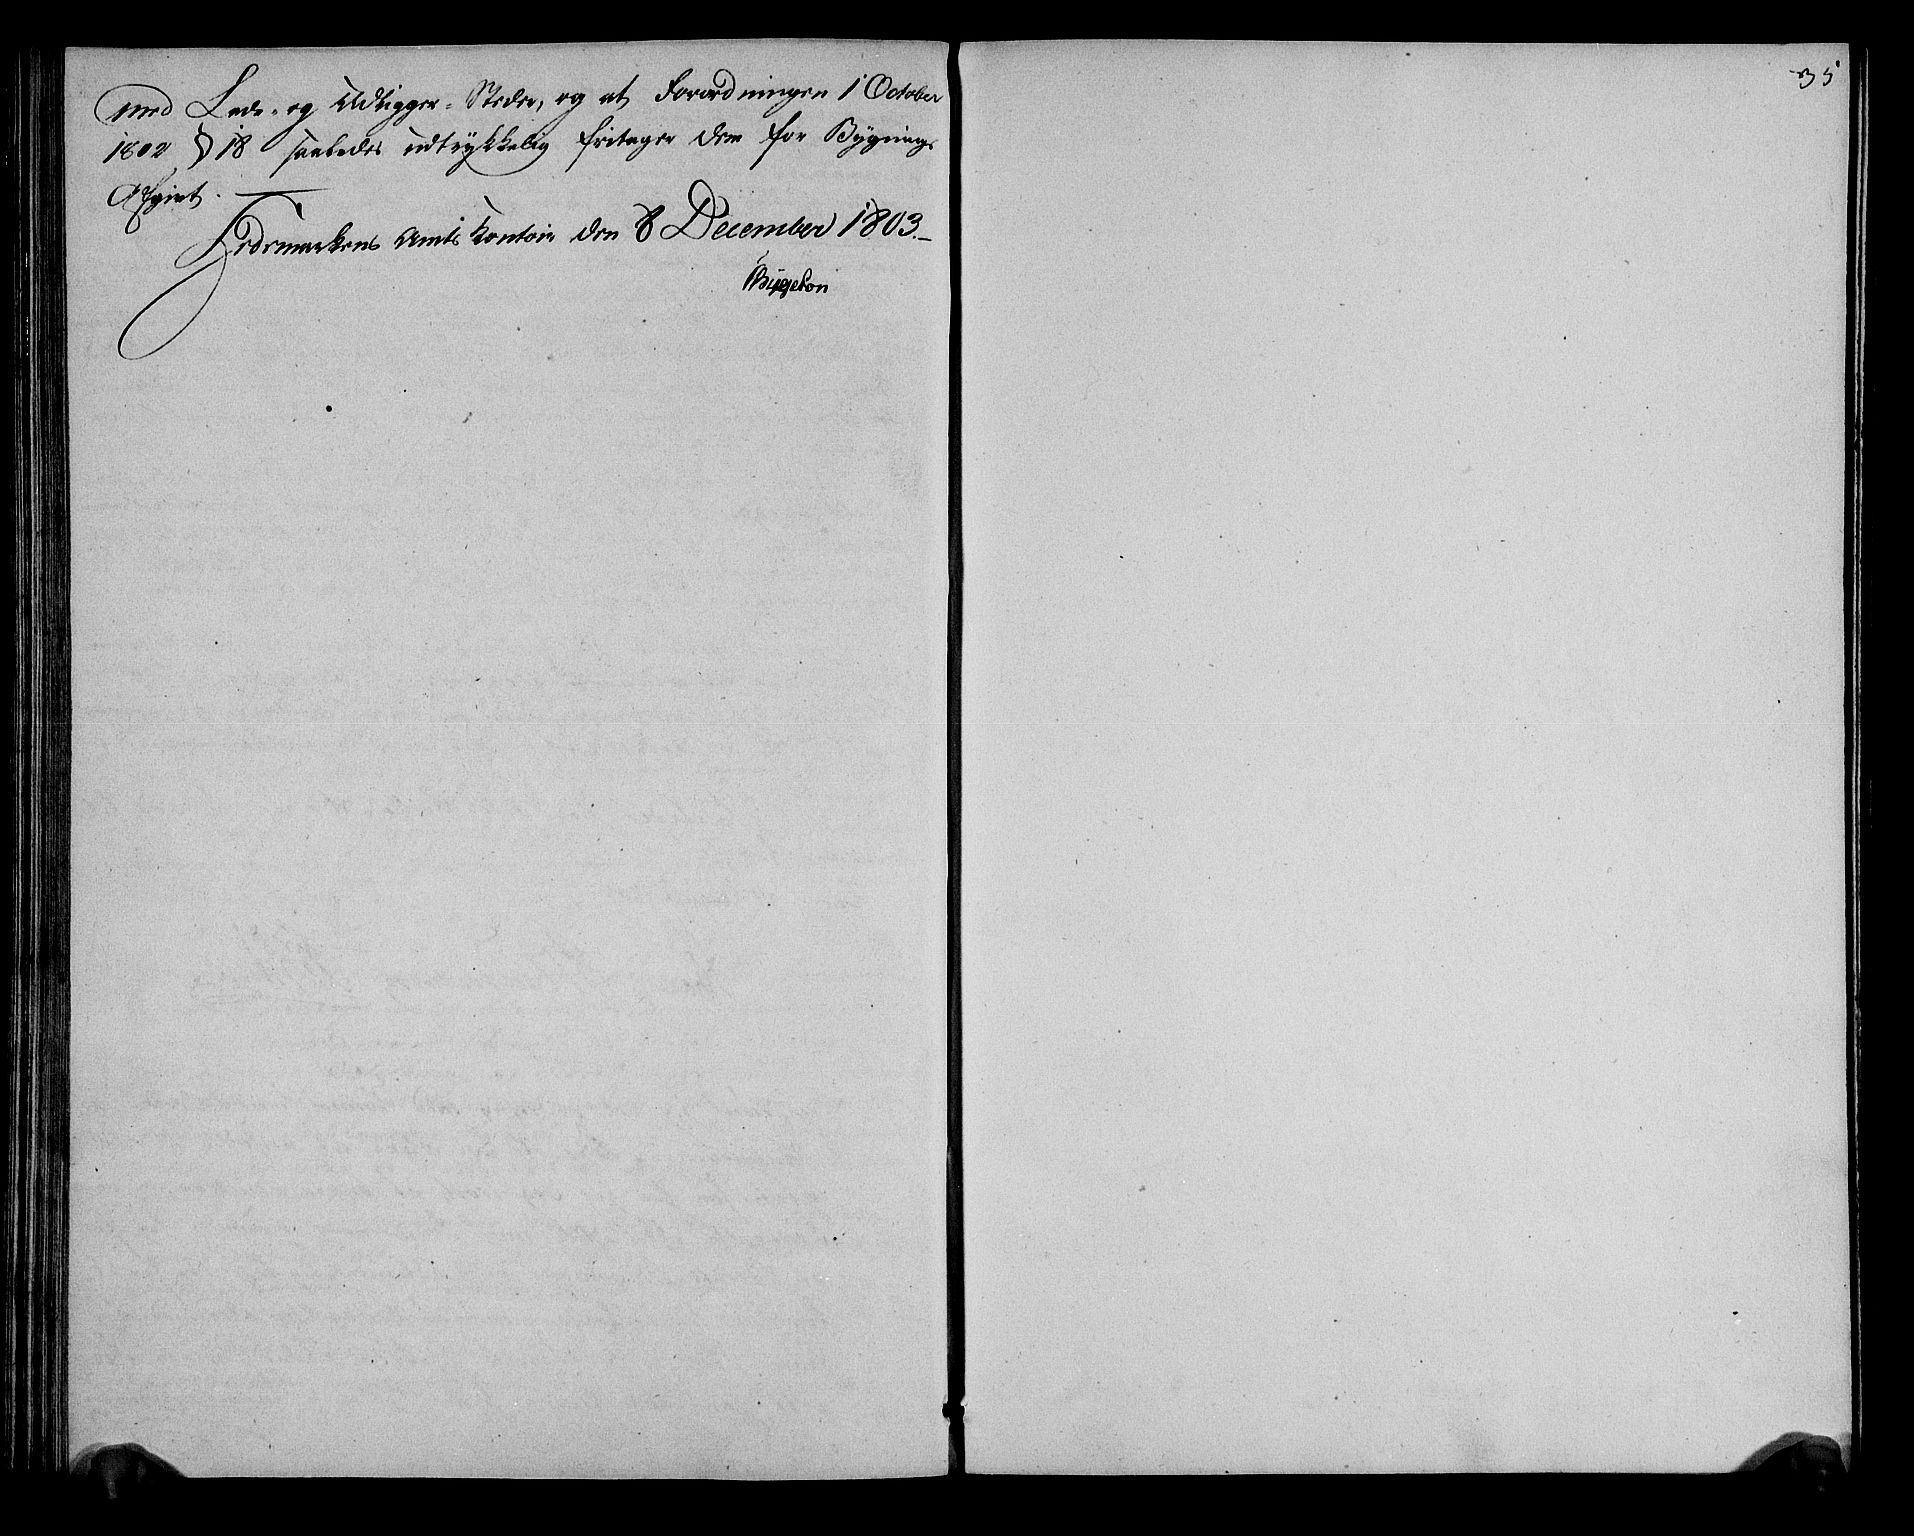 med Lade- og Udligger-Steder, og at Forordningen 1 October
1802 § 18 saaledes udtrykkelig fritager dem for Bygnings
Afgivt.
Hedemarkens Amts Contoir den 8 December 1803.
35